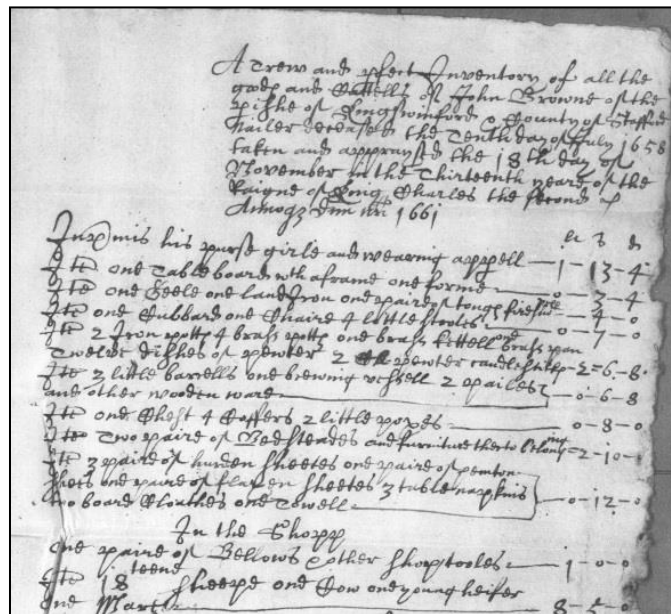 A trew and pfect Inventory of all the
goods and Cattells of John Browne of the
pishe of Kingswinford & County of Stafford
Nailer deceased the Tenth day of July 1658
taken and appraysed the 18th day of
November in the Thirteenth yeare of the
Raigne of King Charles the second &
Annoqz Dm 1661
li s d
Inpmis his purse girle and wearing appell — 1 – 13 – 4
Ite one Table board wth a frame one forme — 0 – 3 – 4
Ite one land Iron one paire of tongs fire — 0 – 4 – 0
Ite one Cubbard one Chaire 4 little stooles — 0 – 7 – 0
Ite 2 Iron potts 4 brass potts one brass kettell one brass pan
Twelve dishes of pewter 2 pewter candlesticks – 2 = 6 – 8
Ite 3 little barrells one brewing vessell 2 pailes
and other wooden ware — 0 – 6 – 8
Ite one Chest 4 Coffers 2 little boxes — 0 – 8 – 0
Ite Two paire of Bedsteades and furniture therto belonging = 2 – 10 –
Ite 3 paire of hurden sheetes one paire of
sheets one paire of flaxen sheetes 3 table napkins
two board Cloathes one Towell — 0 – 12 – 0
In the Shopp
One paire of Bellows & other shop tooles — 1 – 0 – 0
Ite 18teene sheepe one Cow one young heifer
one Mare — 8